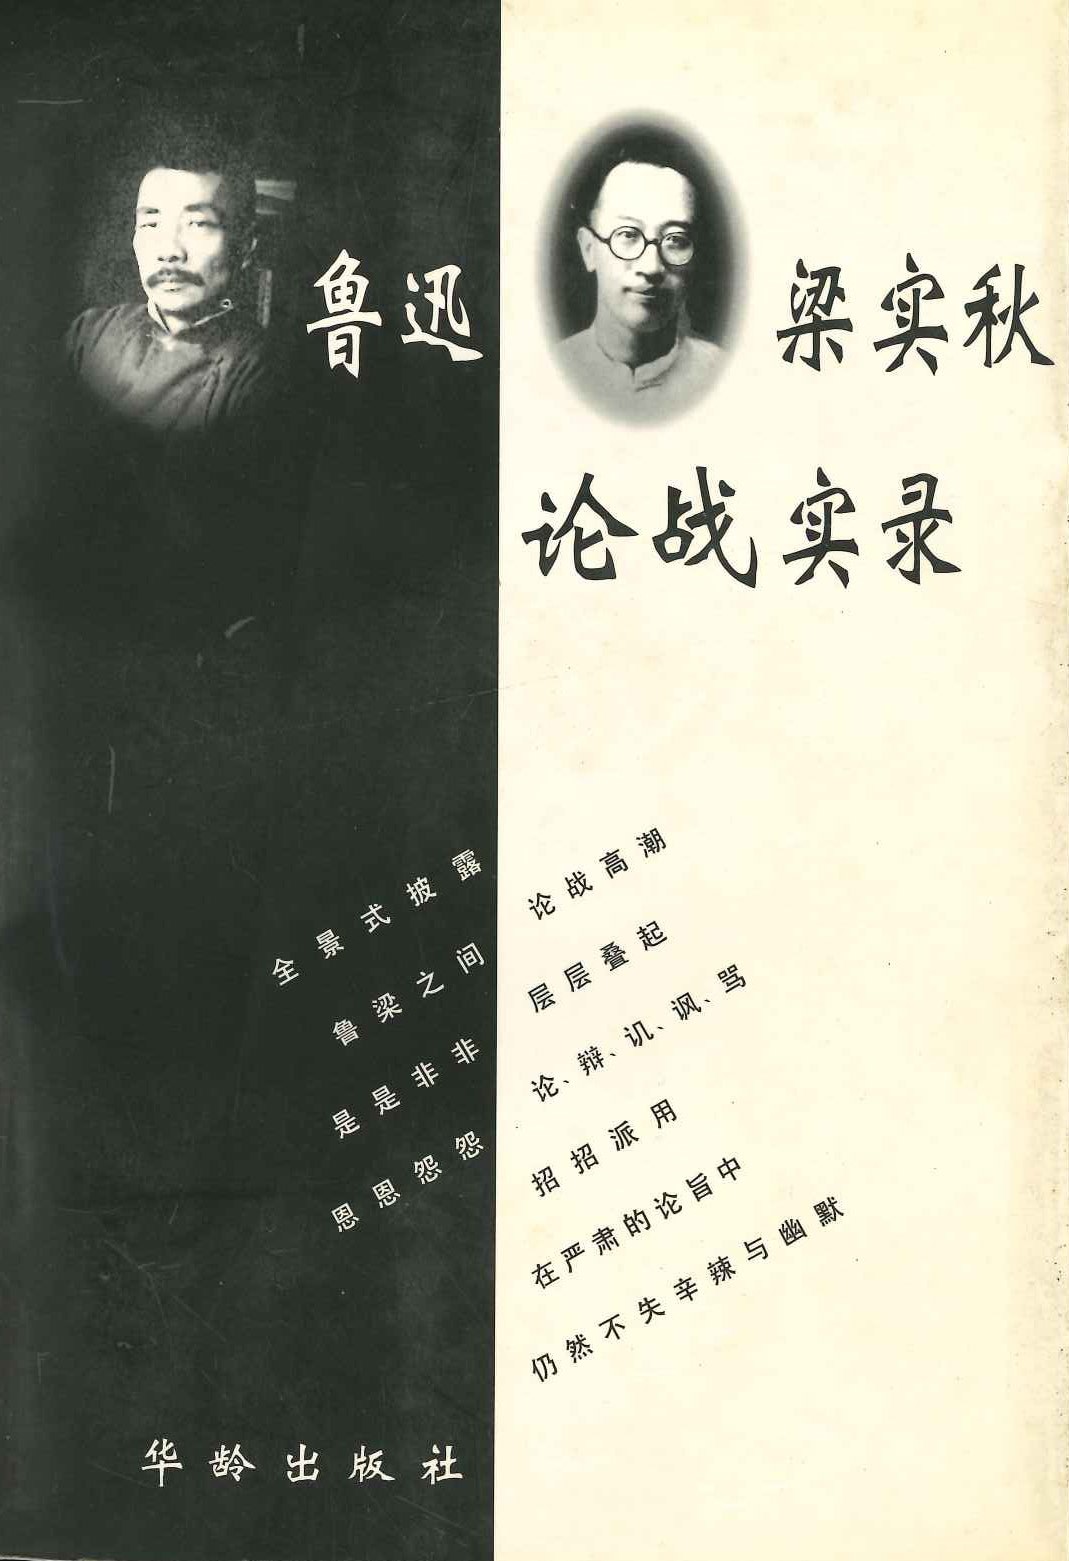 鲁迅 梁实秋
论战实录
全景式披露
鲁梁之间
是是非非
恩恩怨怨
论战高潮
层层叠起
论、辩、讥、讽、骂
招招派用
在严肃的论旨中
仍然不失辛辣与幽默
华龄出版社